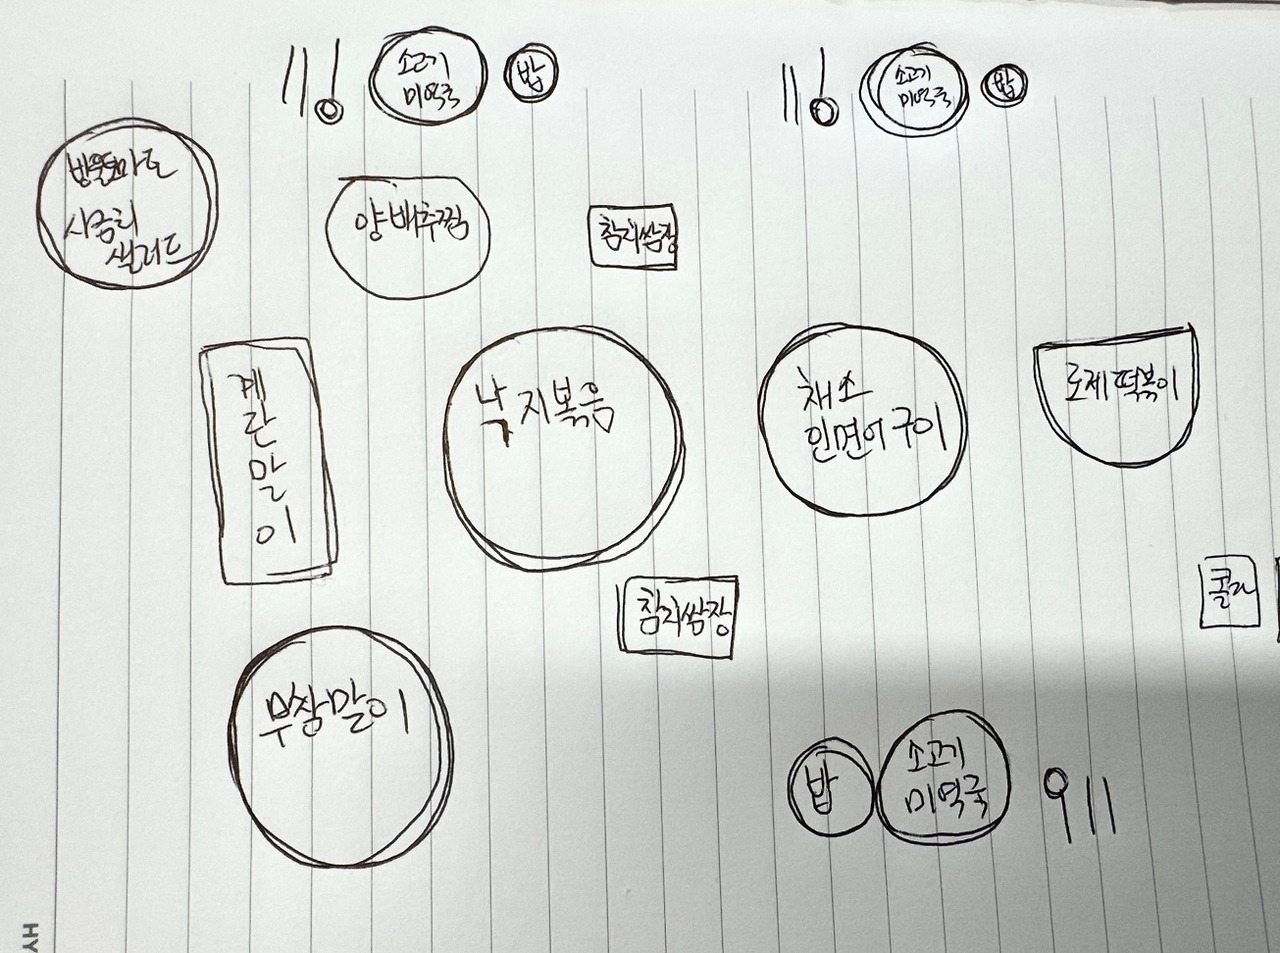 소고기
미역국
밥
소고기
미역국
밥
방울토마토
시금치
샐러드
양배추찜
참치쌈장
계
란
말
이
낙지볶음
채소
인면어구이
로제떡볶이
콜라
참치쌈장
무쌈말이
밥
소고기
미역국
HY